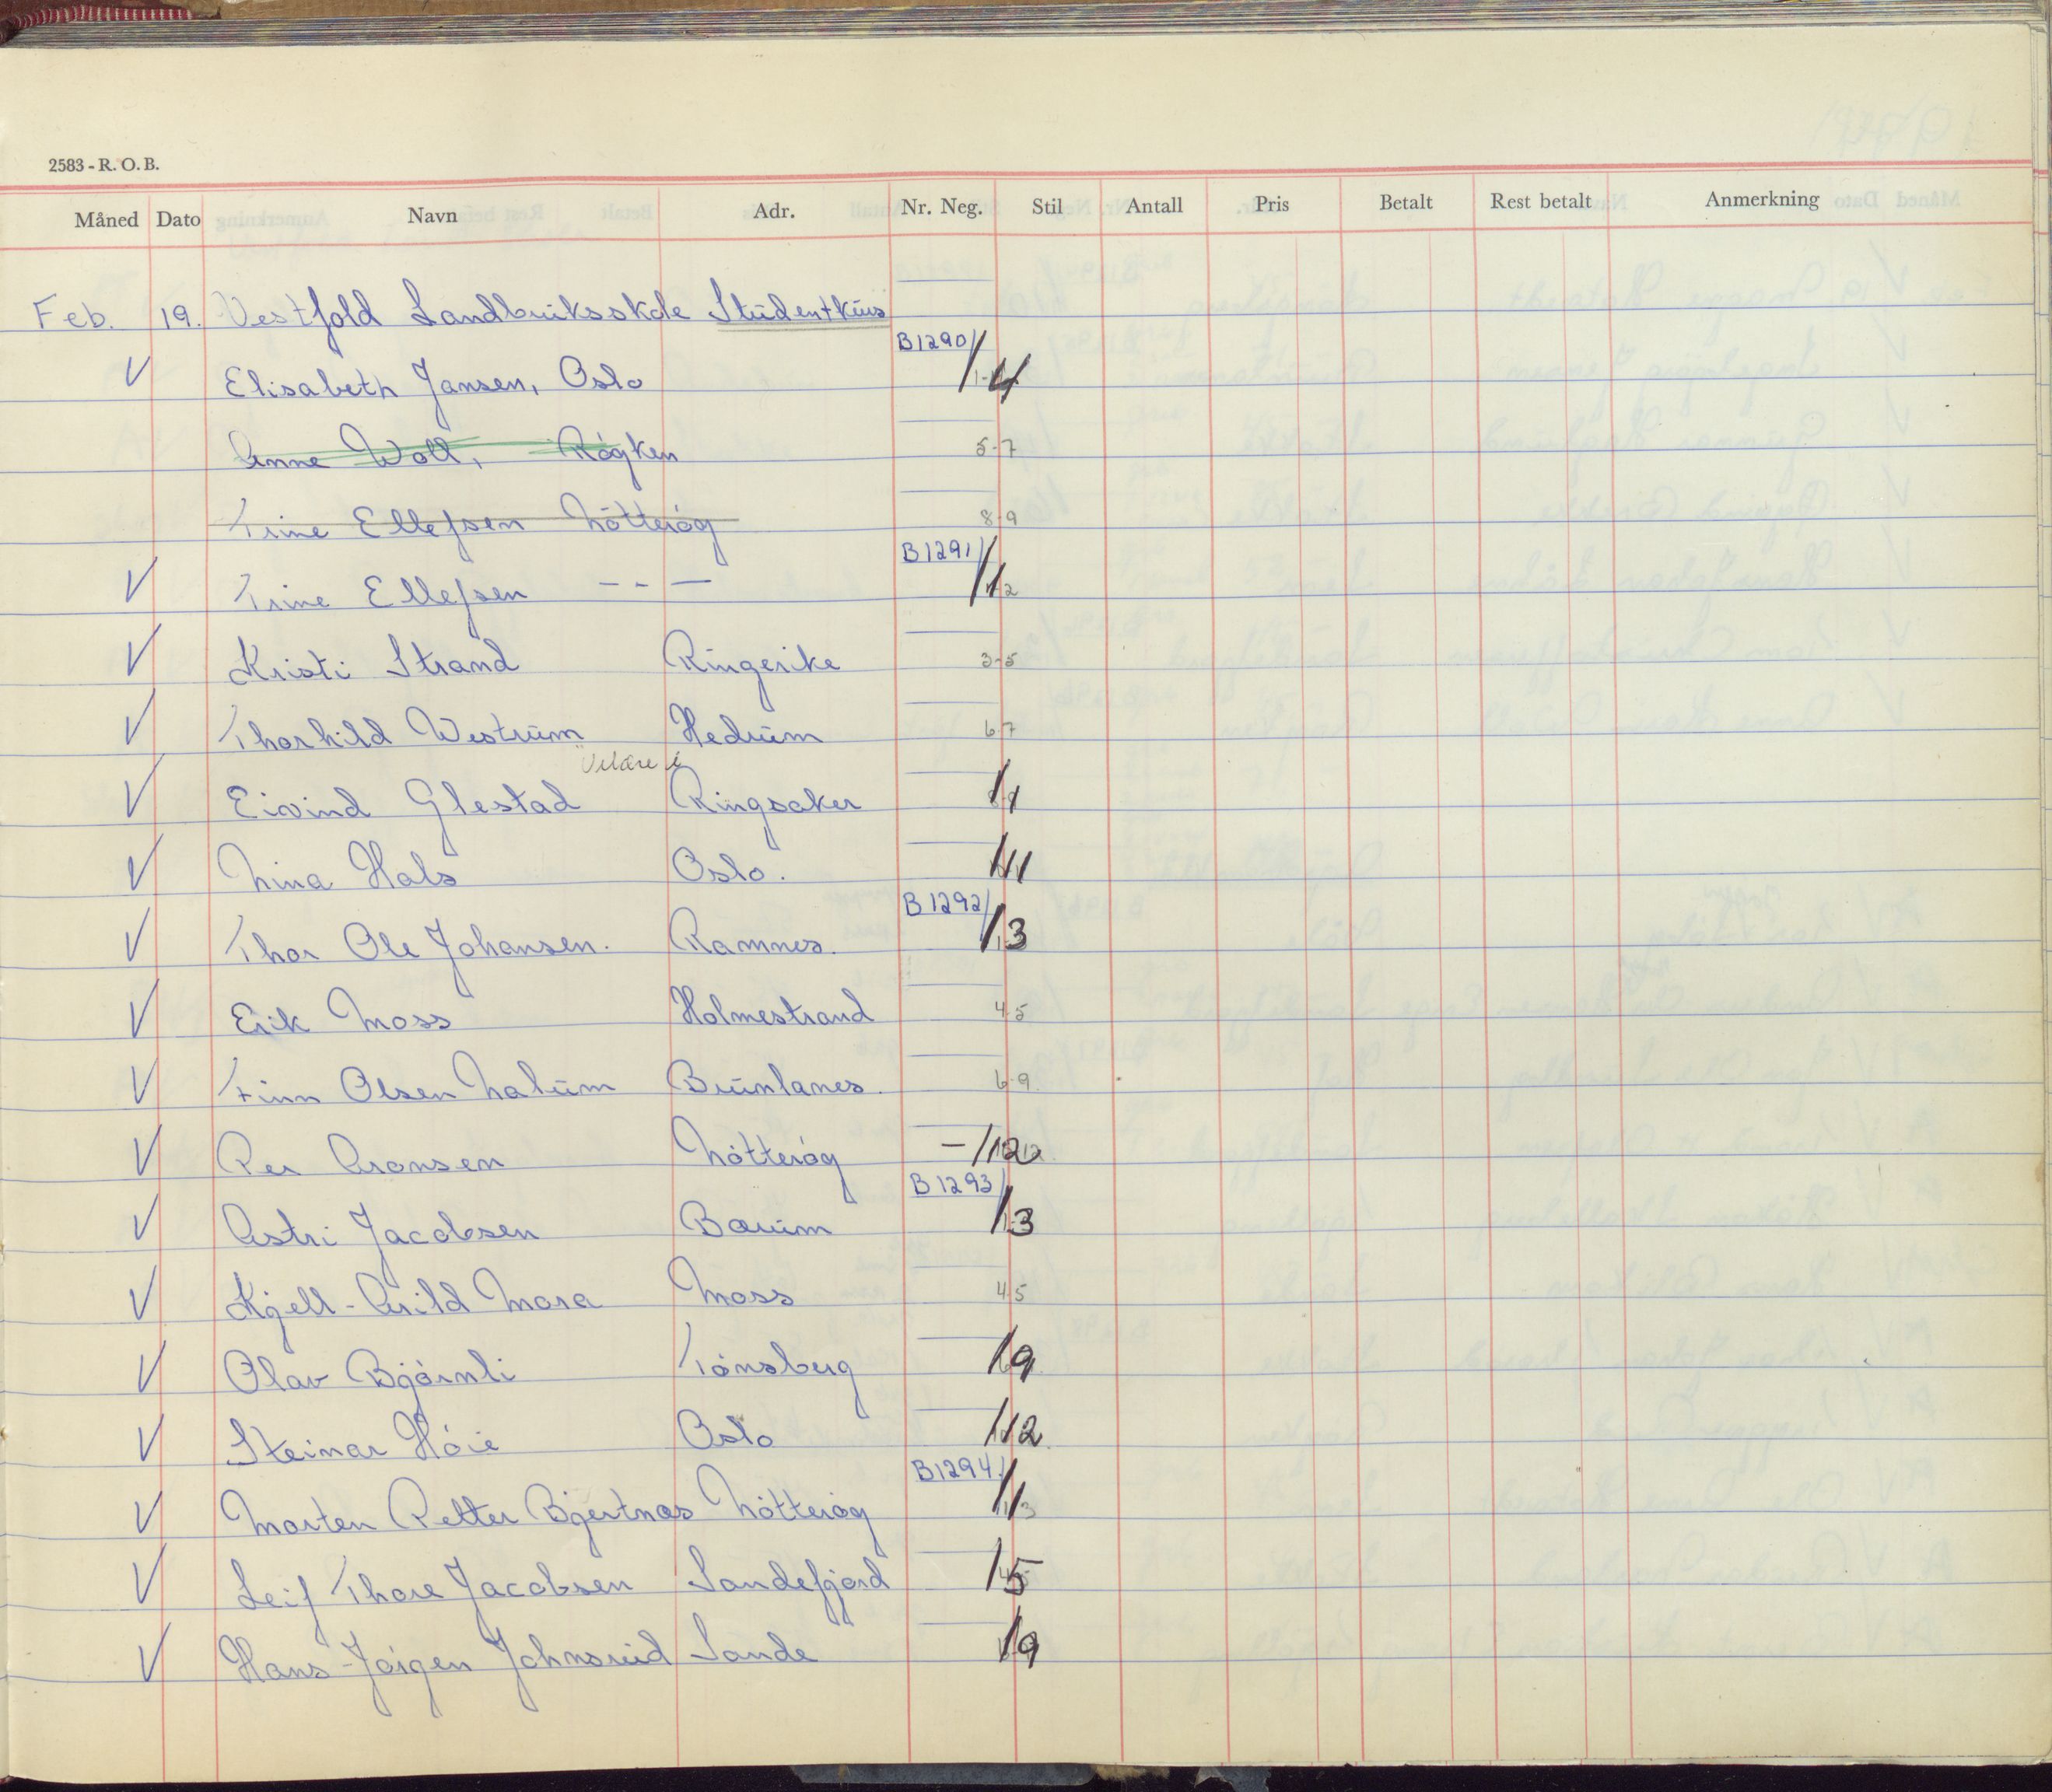 2583 - R. O. B.
Måned Dato Navn Adr. Nr. Neg. Stil Antall Pris Betalt Rest betalt Anmerkning
Feb. 19. Vestfold Landbruksskole Studentkurs
B1290/
V Elisabeth Jansen, Oslo /4
Anne Woll, Røyken 5-7
Trine Ellefsen Nøtterøy 8-9
B1291/
V Trine Ellefsen - - — /1 2
V Kristi Strand Ringerike 3-5
V Thorhild Westrum Hedrum 6-7
Utlære i
V Eivind Glestad Ringsaker /9
V Nina Hals Oslo. /11
B1292/
V Thor Ole Johansen. Ramnes. /3
V Erik Moss Holmestrand 4-5
V Finn Olsen Nalum Brunlanes. 6-9
V Per Aronsen Nøtterøy -/12
B1293/
V Astri Jacobsen Bærum /3
V Kjell-Arild Mora Moss 4-5
V Olav Bjørnli Tønsberg /9
V Steinar Høie Oslo /12
B1294/
V Morten Petter Bjertnæs Nøtterøy /1 3
V Leif Thore Jacobsen Sandefjord /5
V Hans-Jørgen Johnsrud Sande /9